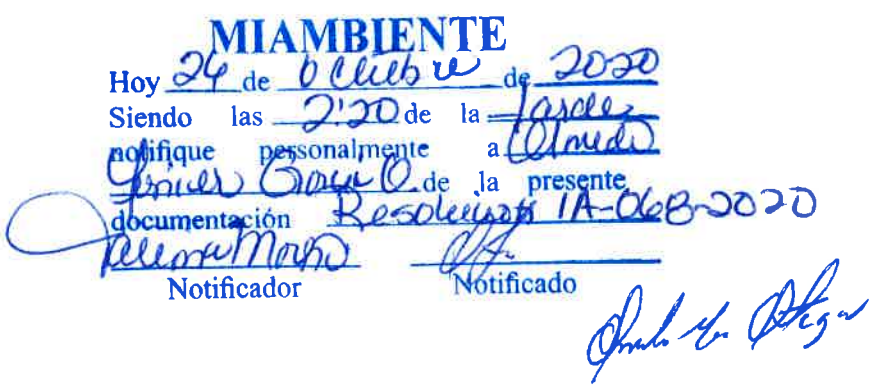 MIAMBIENTE
Hoy 26 de Octubre de 2020
Siendo las 2:20 de la tarde
notifique personalmente a Olmedo
de la presente
documentación Resolución IA-068-2020
Notificador Notificado